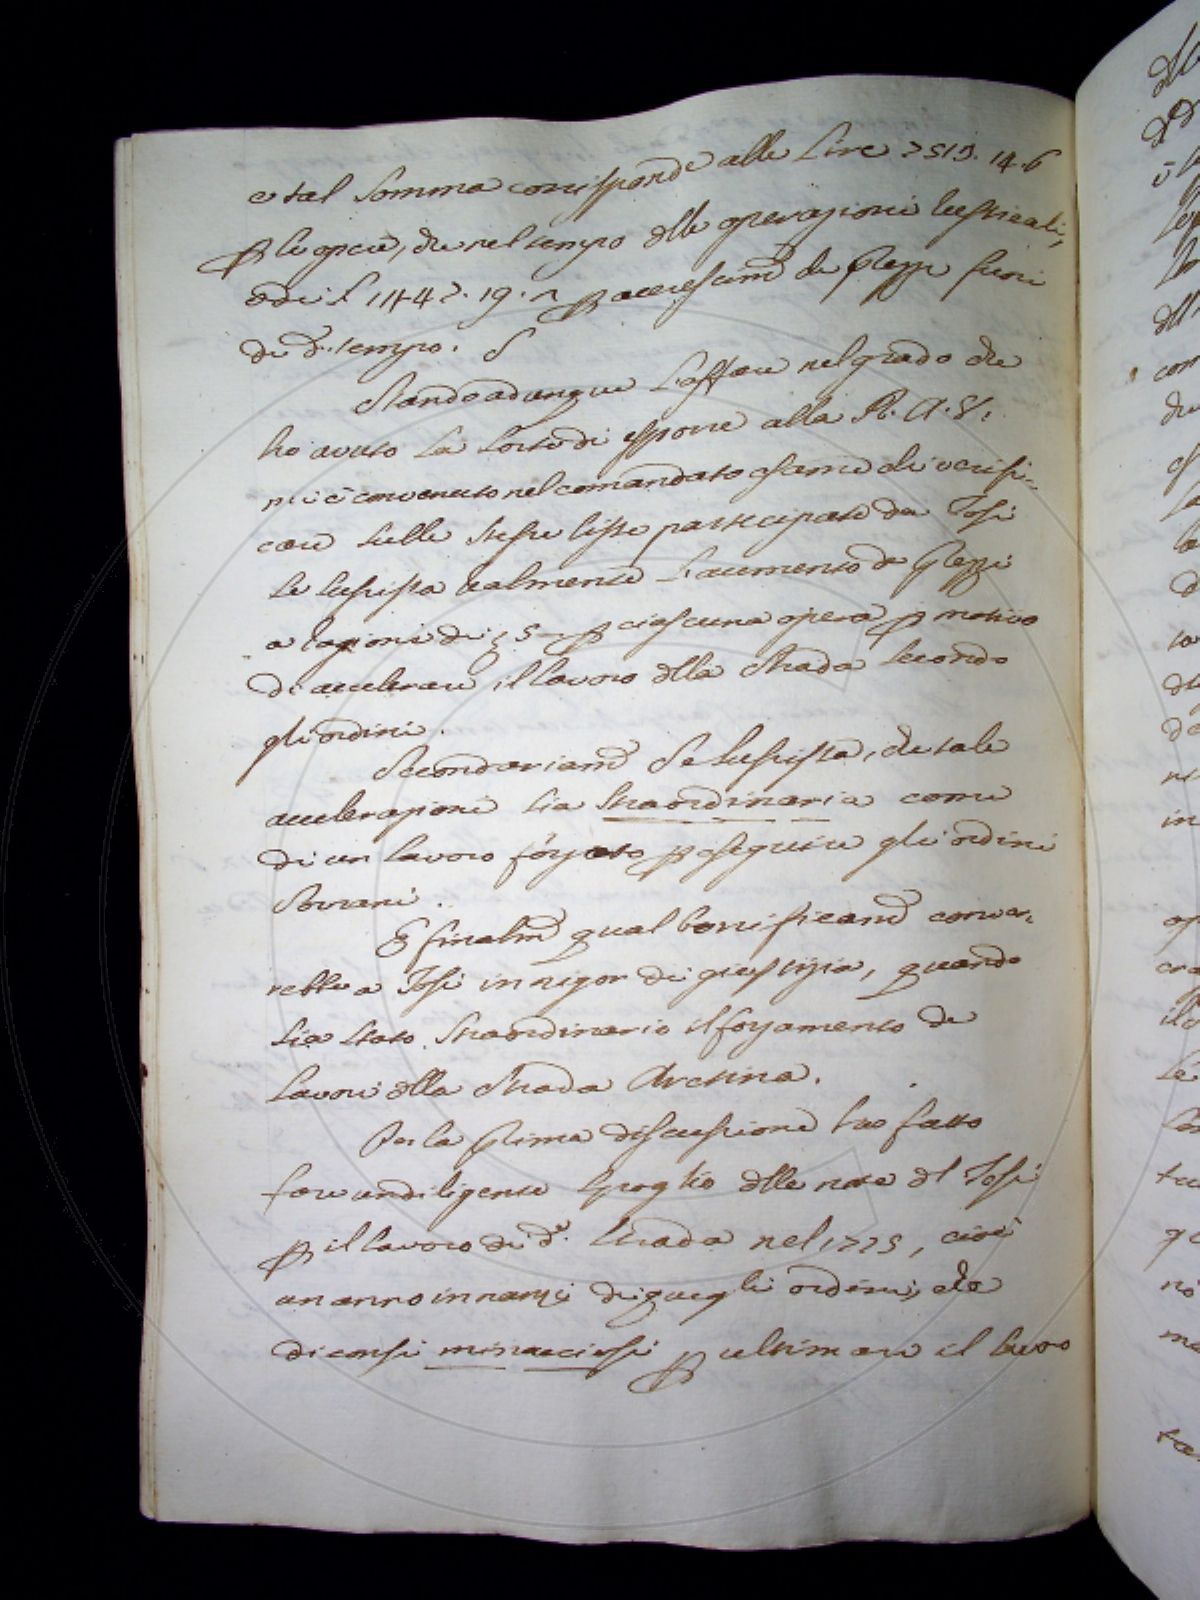 e tal somma corrisponde alle Lire 7513. 14. 6
P le opere, che nel tempo dlle operazioni rusticali,
ed i £ 11442. 19. accrescimto de prezzi fuori
di do. tempo.
Stando adunque l'affare nel grado che
ho avuto la sorte di esporre alla R. A. V.
mi è convenuto nel comandato esame di verifi-
care sulle stesse liste partecipate da Tosi
se sussista realmente l'aumento de prezzi
a ragione di 5 P ciascuna opera P motivo
di accelerare il lavoro dlla Strada secondo
gli ordini.
Secondariamte Se sussista, che tale
accelerazione sia straordinaria come
di un lavoro forzato P eseguire gli ordini
Sovrani.
E finalmte qual bonificamto conver-
rebbe a Tosi in rigor di giustizia, quando
sia stato straordinario il forzamento de
lavori dlla Strada Aretina.
Per la prima discussione ho fatto
fare un diligente spoglio dlle note dl Tosi
P il lavoro di da. strada nel 1775, cioè
un anno innanzi di quegli ordini, che
diconsi minacciosi P ultimare il lavoro